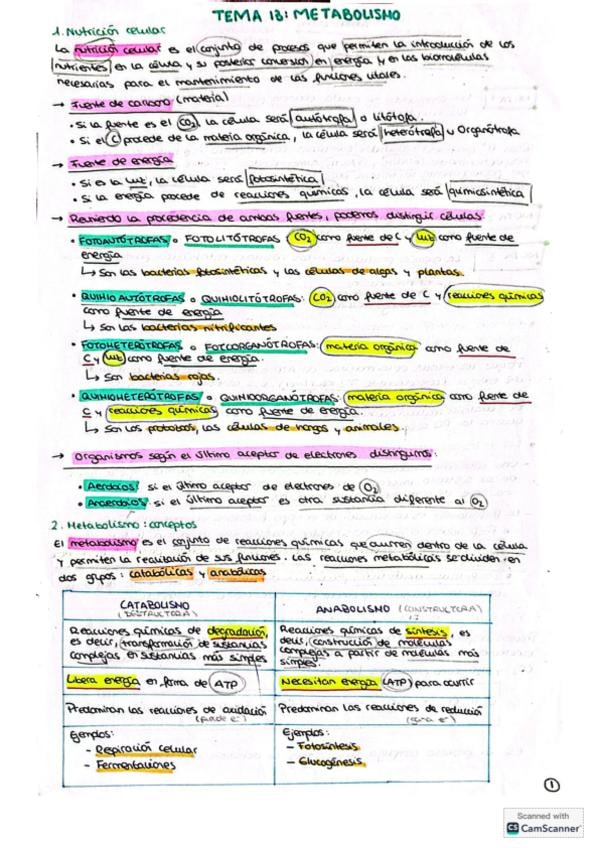 TEMA 13: METABOLISMO
1. Nutrición celular
La nutrición celular es el conjunto de procesos que permiten la introducción de los
nutrientes en la célula y su posterior conversión en energía y en las biomoléculas
necesarias para el mantenimiento de las funciones vitales.
→ Fuente de carbono (materia)
• Si la fuente es el CO2, la célula será autótrofa o litótofa.
• Si el C procede de la materia orgánica, la célula será heterótrofa u Organótrofa
→ Fuente de energía
• Si es la luz, la célula será fotosintética
• Si la energía procede de reacciones químicas, la célula será quimiosintética
→ Reuniendo la procedencia de ambas fuentes, podemos distinguir células:
• FOTOAUTÓTROFAS o FOTOLITÓTROFAS: CO2 como fuente de C y luz como fuente de
energía
↳ Son las bacterias fotosintéticas y las células de algas y plantas.
• QUIMIOAUTÓTROFAS o QUIMIOLITÓTROFAS: CO2 como fuente de C y reacciones químicas
como fuente de energía
↳ Son las bacterias nitrificantes
• FOTOHETERÓTROFAS o FOTOORGANÓTROFAS: materia orgánica como fuente de
C y luz como fuente de energía.
↳ Son bacterias rojas.
• QUIMIOHETERÓTROFAS o QUIMIOORGANÓTROFAS: materia orgánica como fuente de
C y reacciones químicas como fuente de energía.
↳ Son los protozoos, las células de hongos y animales.
→ Organismos según el último aceptor de electrones distinguimos:
• Aerobios: si el último aceptor de electrones de O2
• Anaerobios: si el último aceptor es otra sustancia diferente al O2
2. Metabolismo: conceptos
El metabolismo es el conjunto de reacciones químicas que ocurren dentro de la célula
y permiten la realización de sus funciones. Las reacciones metabólicas se dividen en
dos grupos: catabólicas y anabólicas
CATABOLISMO
(DESTRUCTORA)
Reacciones químicas de degradación,
es decir, transformación de sustancias
complejas en sustancias más simples
Libera energía en forma de ATP
Predominan las reacciones de oxidación
(pierde e-)
Ejemplos:
- Respiración celular
- Fermentaciones
ANABOLISMO (CONSTRUCTORA)
Reacciones químicas de síntesis, es
decir, construcción de moléculas
complejas a partir de moléculas más
simples.
Necesitan energía (ATP) para ocurrir
Predominan las reacciones de reducción
(gana e-)
Ejemplos:
- Fotosíntesis
- Glucogénesis
1
Scanned with
CS CamScanner